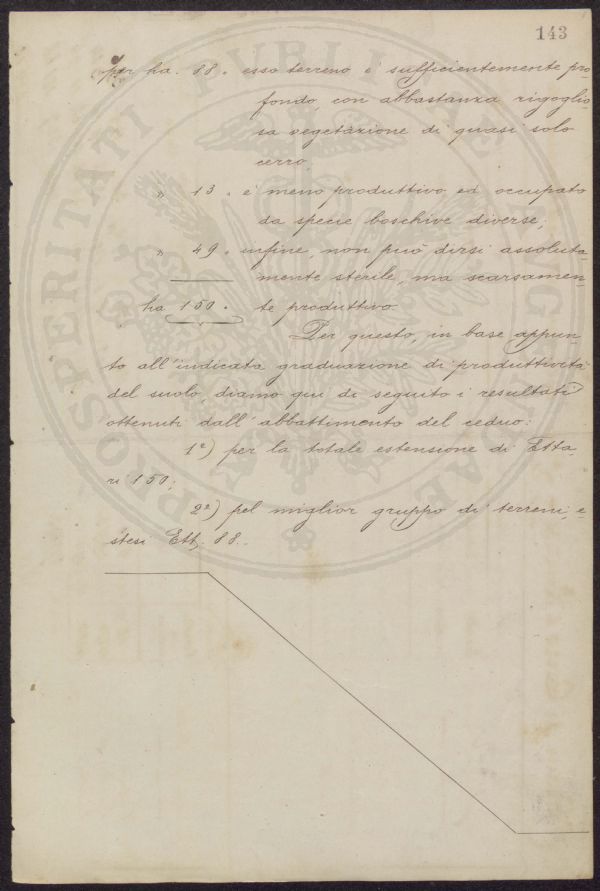 143
per ha. 88. esso terreno è sufficientemente pro-
fondo, con abbastanza rigoglio-
sa vegetazione di quasi solo
cerro
" 13. è meno produttivo ed occupato
da specie boschive diverse;
" 49. infine, non può dirsi assoluta-
mente sterile, ma scarsamen-
ha 150. te produttivo.
Per questo, in base appun-
to all'indicata graduazione di produttività
del suolo, diamo qui di seguito i resultati
ottenuti dall'abbattimento del ceduo:
1º) per la totale estensione di Etta,
ri 150;
2º) pel miglior gruppo di terreni, e-
stesi Ett. 88.
PROSPERITATI PVBLICAE